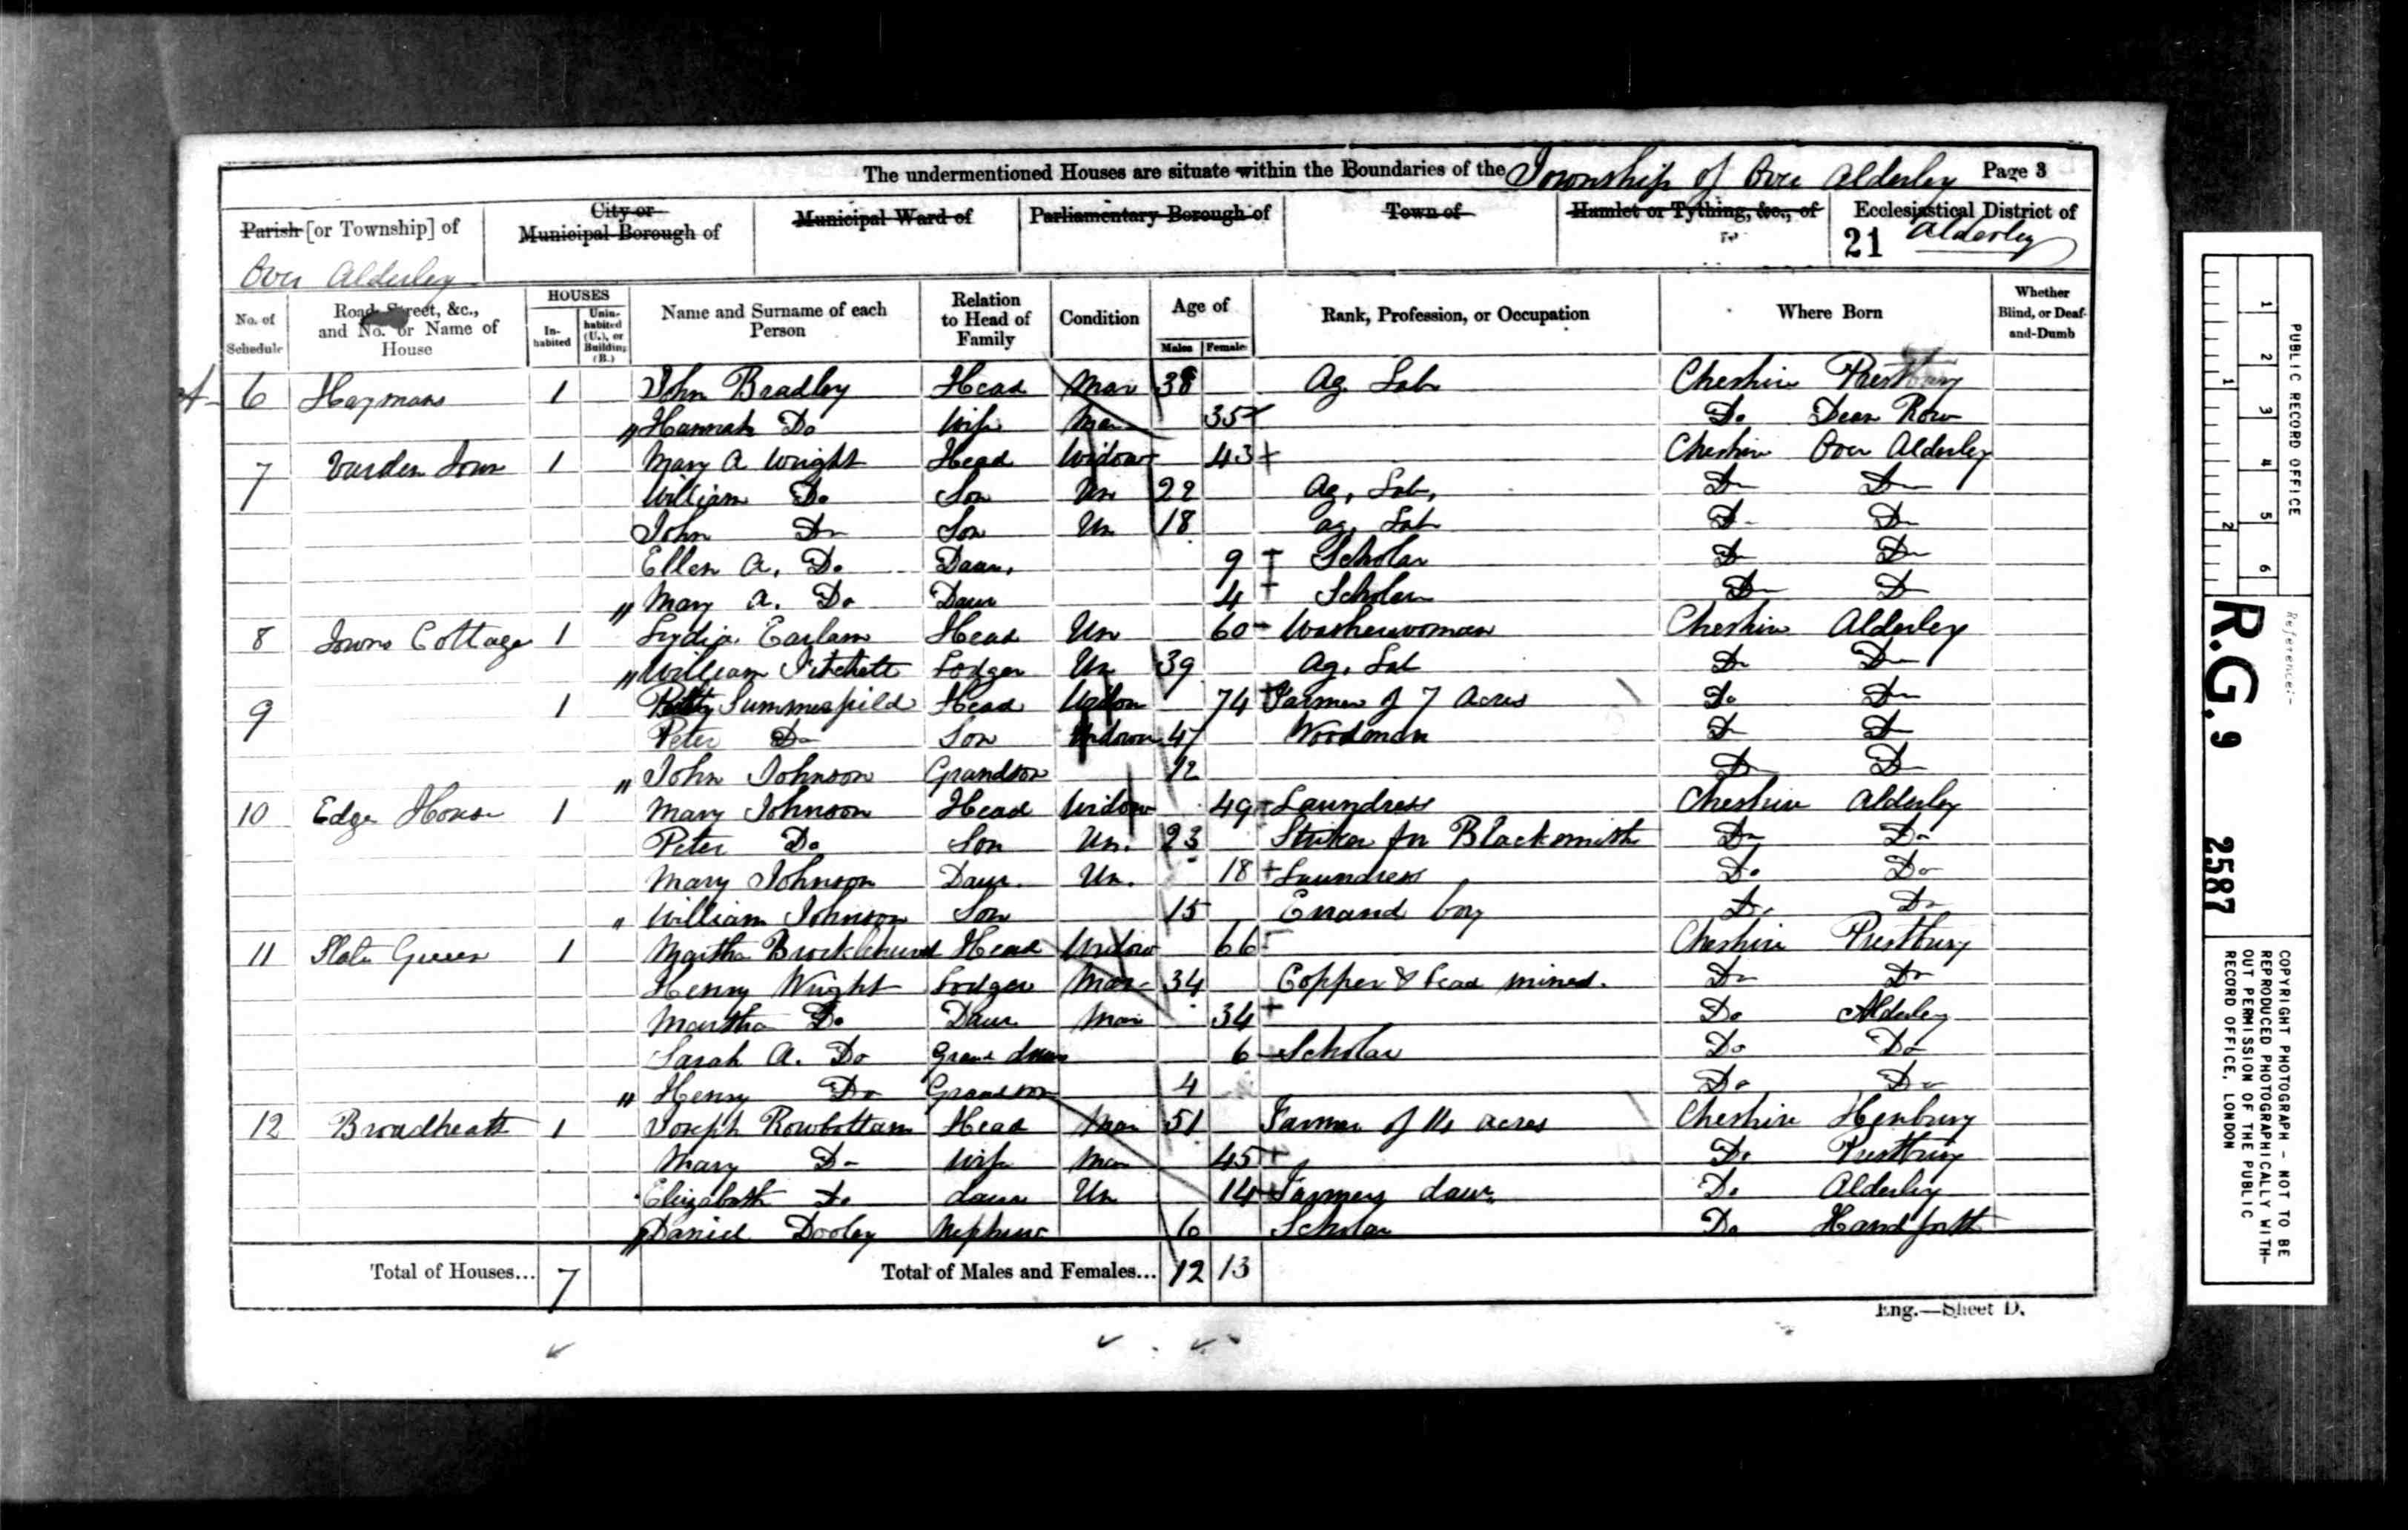 The undermentioned Houses are situate within the Boundaries of the Township of Over Alderley Page 3
Parish [or Township] of City or Municipal Borough of Municipal Ward of Parliamentary Borough of Town of Hamlet or Tything, &c., of Ecclesiastical District of
Over Alderley 21 Alderley
No. of Schedule Road, Street, &c., and No. or Name of House HOUSES Inhabited Uninhabited (U.), or Building (B.) Name and Surname of each Person Relation to Head of Family Condition Age of Males Females Rank, Profession, or Occupation Where Born Whether Blind, or Deaf-and-Dumb
6 Haymans 1 John Bradley Head Mar 38 Ag. Lab Cheshire Prestbury
" Hannah Do Wife Mar 35 Do Dean Row
7 Varden Town 1 Mary A Wright Head Widow 43 Cheshire Over Alderley
William Do Son Un 22 Ag. Lab. Do Do
John Do Son Un 18 Ag. Lab Do Do
Ellen A. Do Daur. 9 Scholar Do Do
" Mary A. Do Daur 4 Scholar Do Do
8 Cottage 1 Lydia Earlam Head Un 60 Washerwoman Cheshire Alderley
" William Lodger Un 39 Ag. Lab Do Do
9 1 Summerfield Head Widow 74 Farmer of 7 Acres Do Do
Peter Do Son Widower 47 Woodman Do Do
" John Johnson Grandson 12 Do Do
10 Edge House 1 Mary Johnson Head Widow 49 Laundress Cheshire Alderley
Peter Do Son Un. 23 Striker for Blacksmith Do Do
Mary Johnson Daur. Un. 18 Laundress Do Do
" William Johnson Son 15 Errand boy Do Do
11 Slate Green 1 Martha Brocklehurst Head Widow 66 Cheshire Prestbury
Henry Wright Lodger Mar 34 Copper & Lead miner. Do Do
Martha Do Daur Mar 34 Do Alderley
Sarah A. Do Grand daur 6 Scholar Do Do
" Henry Do Grandson 4 Do Do
12 Broadheath 1 Joseph Rowbottam Head Mar 51 Farmer of acres Cheshire Henbury
Mary Do Wife Mar 45 Do Prestbury
Elizabeth Do daur Un 14 Farmers daur. Do Alderley
" Daniel Dooley Nephew 6 Scholar Do Handforth
Total of Houses... 7 Total of Males and Females... 12 13
Eng.—Sheet D.
PUBLIC RECORD OFFICE
1 2 3 4 5 6
1 2
Reference:-
R.G. 9 2587
COPYRIGHT PHOTOGRAPH - NOT TO BE
REPRODUCED PHOTOGRAPHICALLY WITH-
OUT PERMISSION OF THE PUBLIC
RECORD OFFICE, LONDON